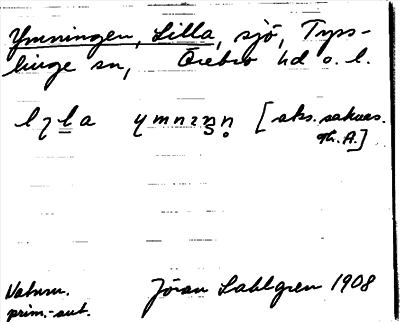 Ymningen, Lilla, sjö, Tyss-
linge sn, Örebro hd o. l.
lɿla ymnɿnn [aks. saknas.
gh. A.]
Naturn.
prim.-aut.
Jöran Sahlgren 1908